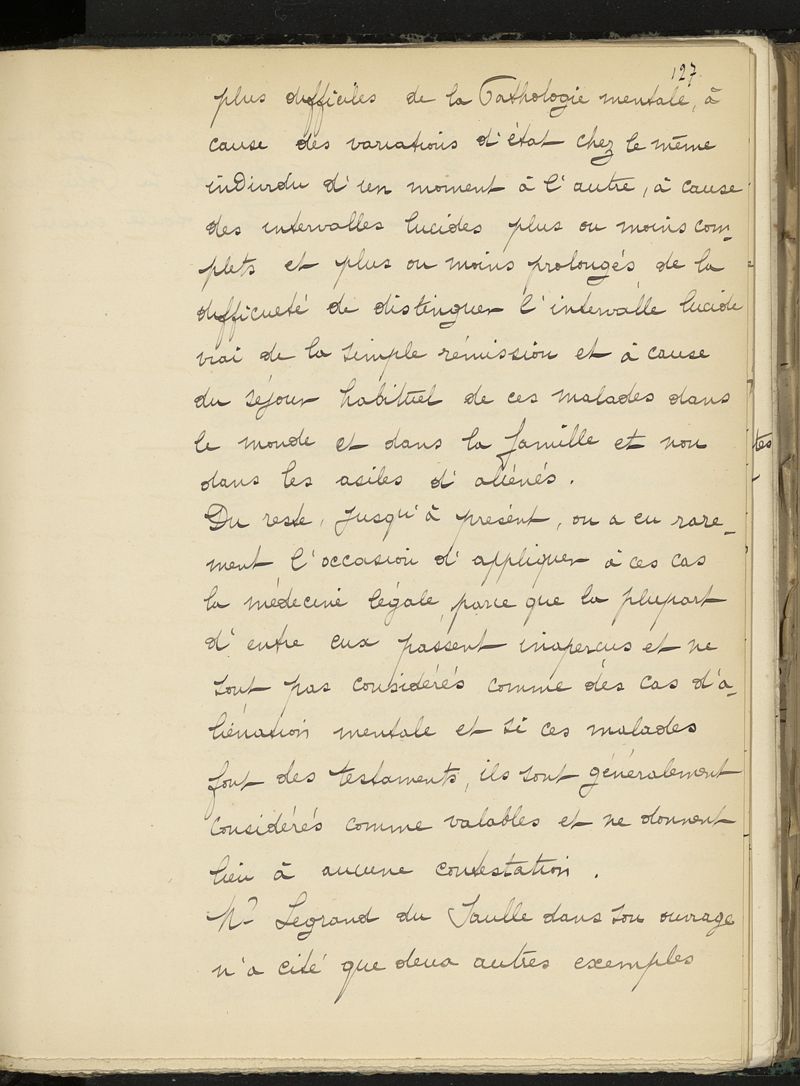 127.
plus difficiles de la Pathologie mentale, à
cause des variations d'état chez le même
individu d'un moment à l'autre, à cause
des intervalles lucides plus ou moins com-
plets et plus ou moins prolongés de la
difficulté de distinguer l'intervalle lucide
vrai de la simple rémission et à cause
du séjour habituel de ces malades dans
le monde et dans la famille et non
tes
dans les asiles d'aliénés.
Du reste, jusqu'à présent, on a eu rare-
ment l'occasion d'appliquer à ces cas
la médecine légale, parce que la plupart
d'entre eux passent inaperçus et ne
sont pas considérés comme des cas d'a-
liénation mentale et si ces malades
font des testaments, ils sont généralement
considérés comme valables et ne donnent
lieu à aucune contestation.
Mr Legrand du Saulle dans son ouvrage
n'a cité que deux autres exemples